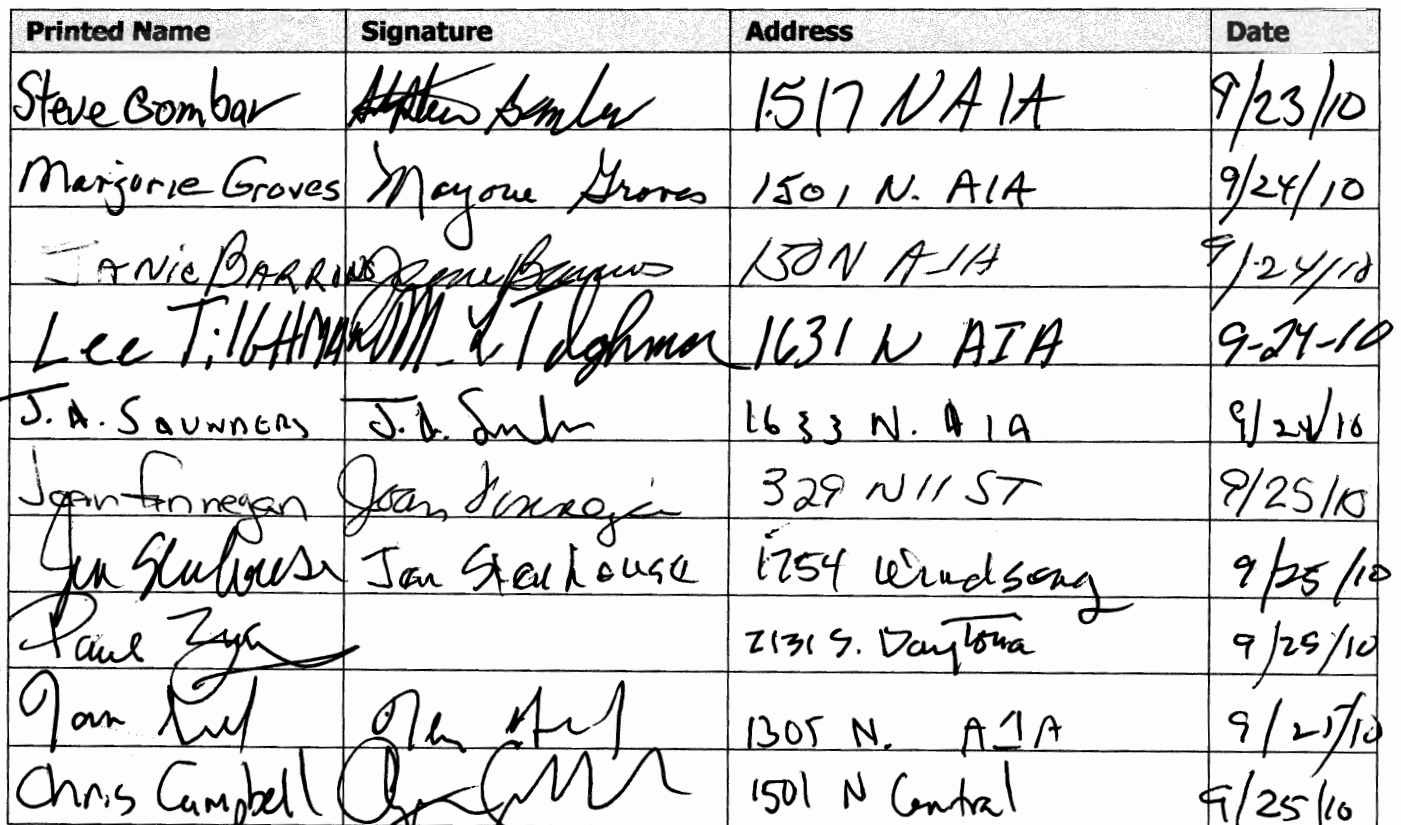 Printed Name Signature Address Date
Steve Bombar 1517 N A1A 9/23/10
Marjorie Groves Marjorie Groves 1501 N. A1A 9/24/10
JANIE BARROWS 150 N A1A 9/24/10
Lee TilGHMAN WM. L Tilghman 1631 N A1A 9-24-10
J.A. SAUNDERS J.A. 1633 N. A1A 9/24/10
Joan Finnegan Joan Finnegan 329 N 11 ST 9/25/10
Jan Stenhouse Jan Stenhouse 1754 Windsong 9/25/10
Paul 2131 S. Daytona 9/25/10
1305 N. A1A 9/25/10
Chris Campbell 1501 N Central 9/25/10